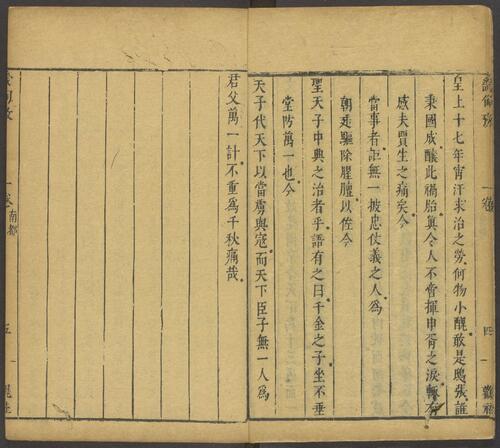 皇上十七年宵汗求治之勞何物小醜敢是鴟張誰
秉國成釀此禍胎眞令人不啻揮申胥之淚輒有
感夫賈生之痛矣今
當事者詎無一披忠仗義之人爲
朝廷驅除腥膻以佐今
聖天子中興之治者乎語有之曰千金之子坐不垂
堂防萬一也今
天子代天下以當虜與寇而天下臣子無一人爲
君父萬一計不重爲千秋痛哉
四
南都
五